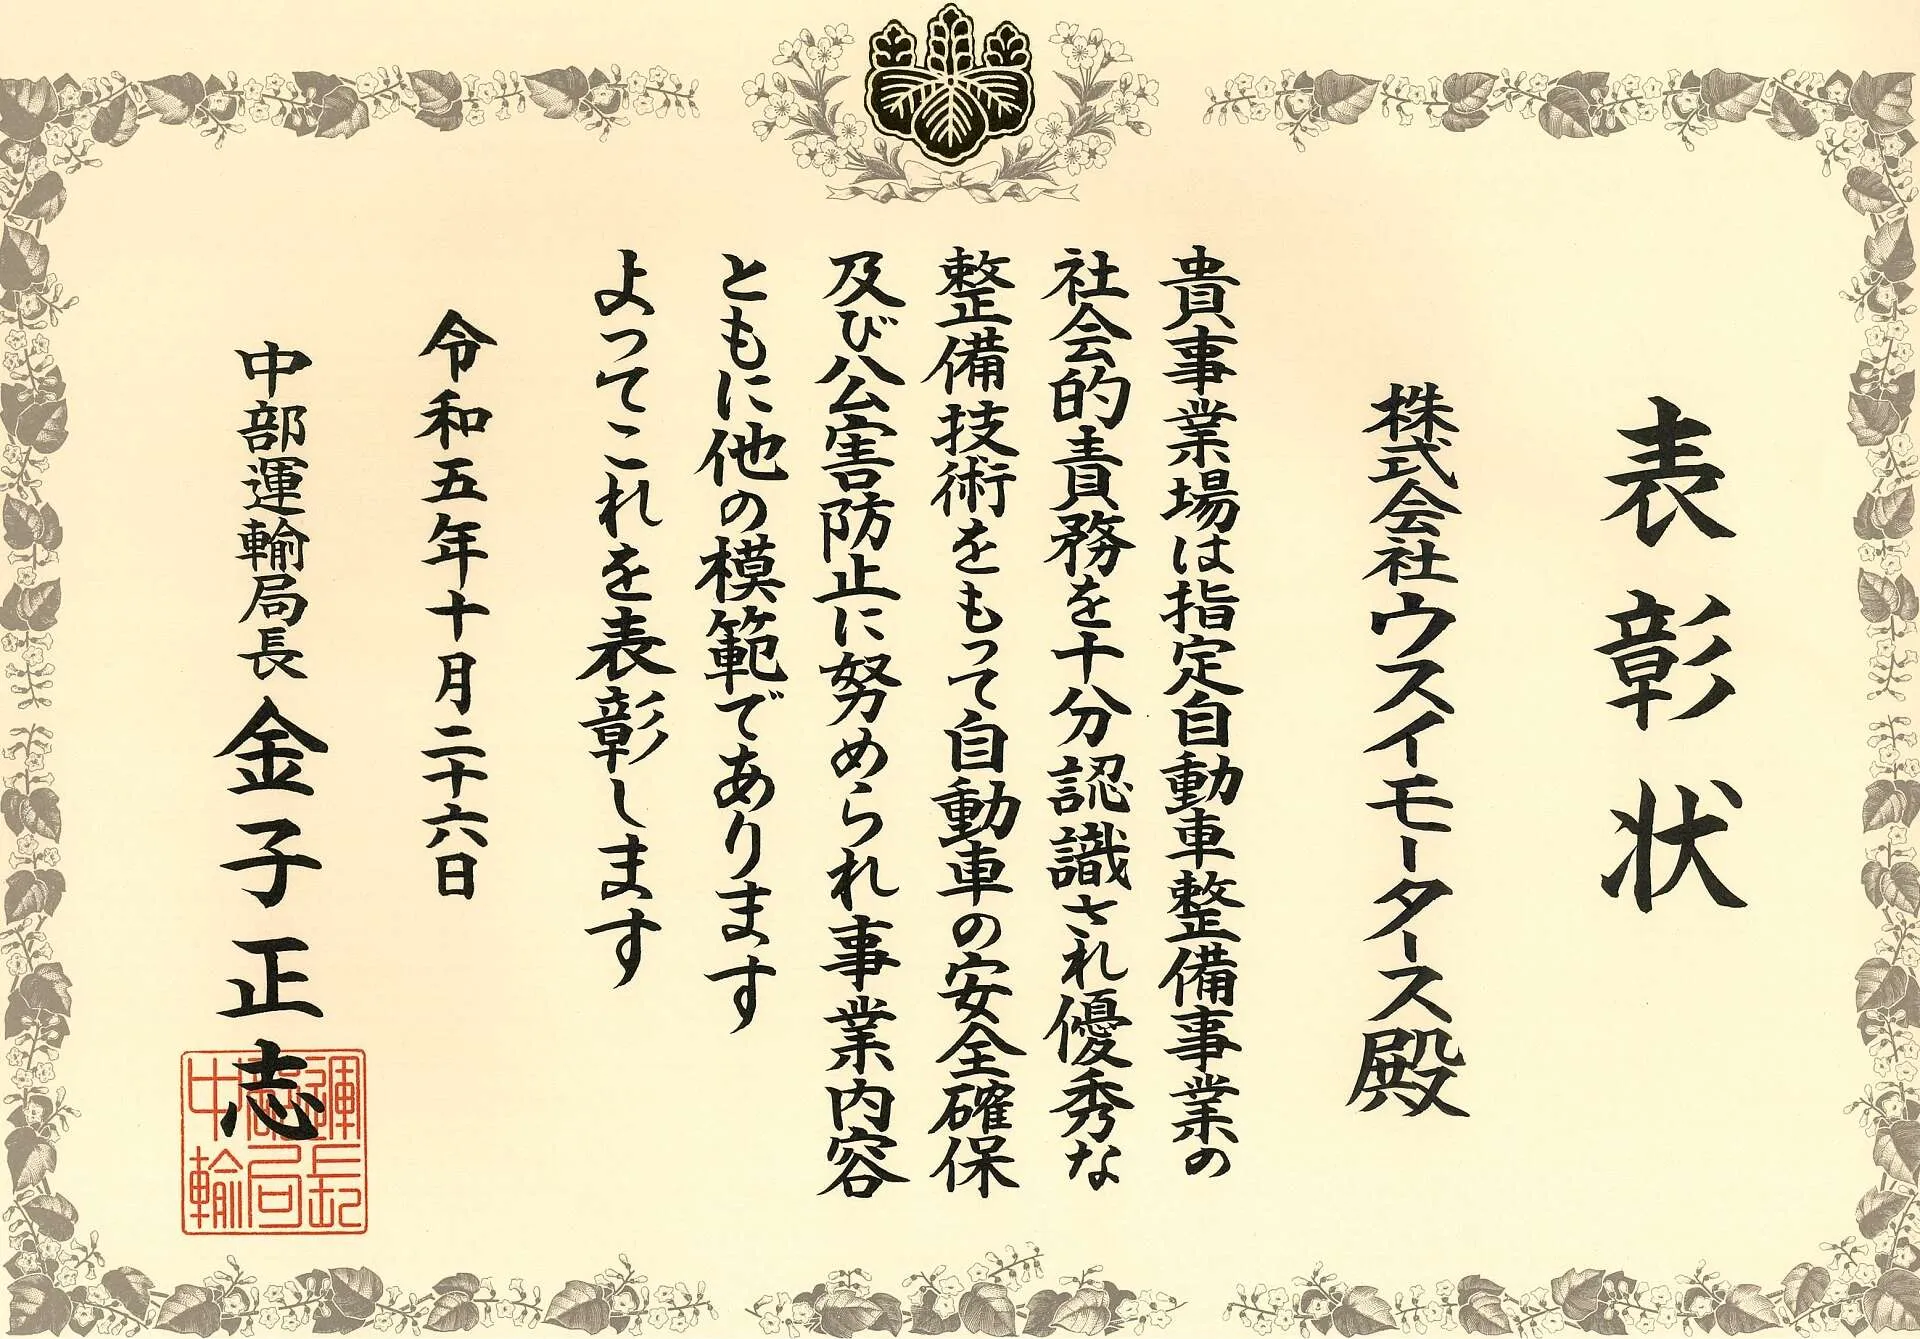 表彰状
株式会社ウスイモータース殿
貴事業場は指定自動車整備事業の
社会的責務を十分認識され優秀な
整備技術をもって自動車の安全確保
及び公害防止に努められ事業内容
ともに他の模範であります
よってこれを表彰します
令和五年十月二十六日
中部運輸局長 金子正志
運長
部局
中輸